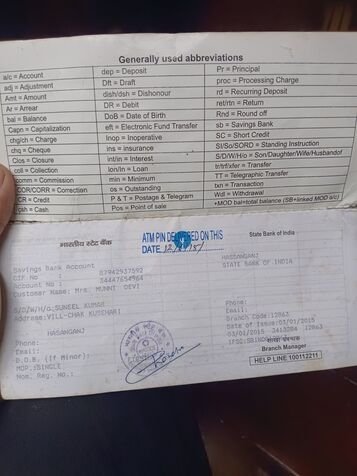 Generally used abbreviations
a/c = Account
adj = Adjustment
Amt = Amount
Ar = Arrear
bal = Balance
Capn = Capitalization
chg/ch = Charge
chq = Cheque
Clos = Closure
coll = Collection
comm = Commission
COR/CORR = Correction
CR = Credit
csh = Cash
dep = Deposit
Dft = Draft
dish/dsh = Dishonour
DR = Debit
DoB = Date of Birth
eft = Electronic Fund Transfer
Inop = Inoperative
ins = insurance
int/in = Interest
lon/ln = Loan
min = Minimum
os = Outstanding
P & T = Postage & Telegram
Pos = Point of sale
Pr = Principal
proc = Processing Charge
rd = Recurring Deposit
ret/rtn = Return
Rnd = Round off
sb = Savings Bank
SC = Short Credit
SI/So/SORD = Standing Instruction
S/D/W/H/o = Son/Daughter/Wife/Husband of
tr/trf/xfer = Transfer
TT = Telegraphic Transfer
txn = Transaction
Wdl = Withdrawal
+MOD bal=total balance (SB+linked MOD a/c)
भारतीय स्टेट बैंक
ATM PIN DELIVERED ON THIS
DATE
State Bank of India
Savings Bank Account
HASANGANJ
STATE BANK OF INDIA
CIF No :
Account No :
Customer Name: Mrs. MUNNI DEVI
S/D/W/H/o: SUNEEL KUMAR
Address: VILL-CHAK KUSEHARI
HASANGANJ
Phone:
Email:
D.O.B. (If Minor):
MOP: SINGLE
Nom. Reg. No.:
Phone:
Email:
Branch Code: 12863
Date of Issue: 03/01/2015
03/01/2015
शाखा प्रबन्धक
Branch Manager
HELP LINE 100112211